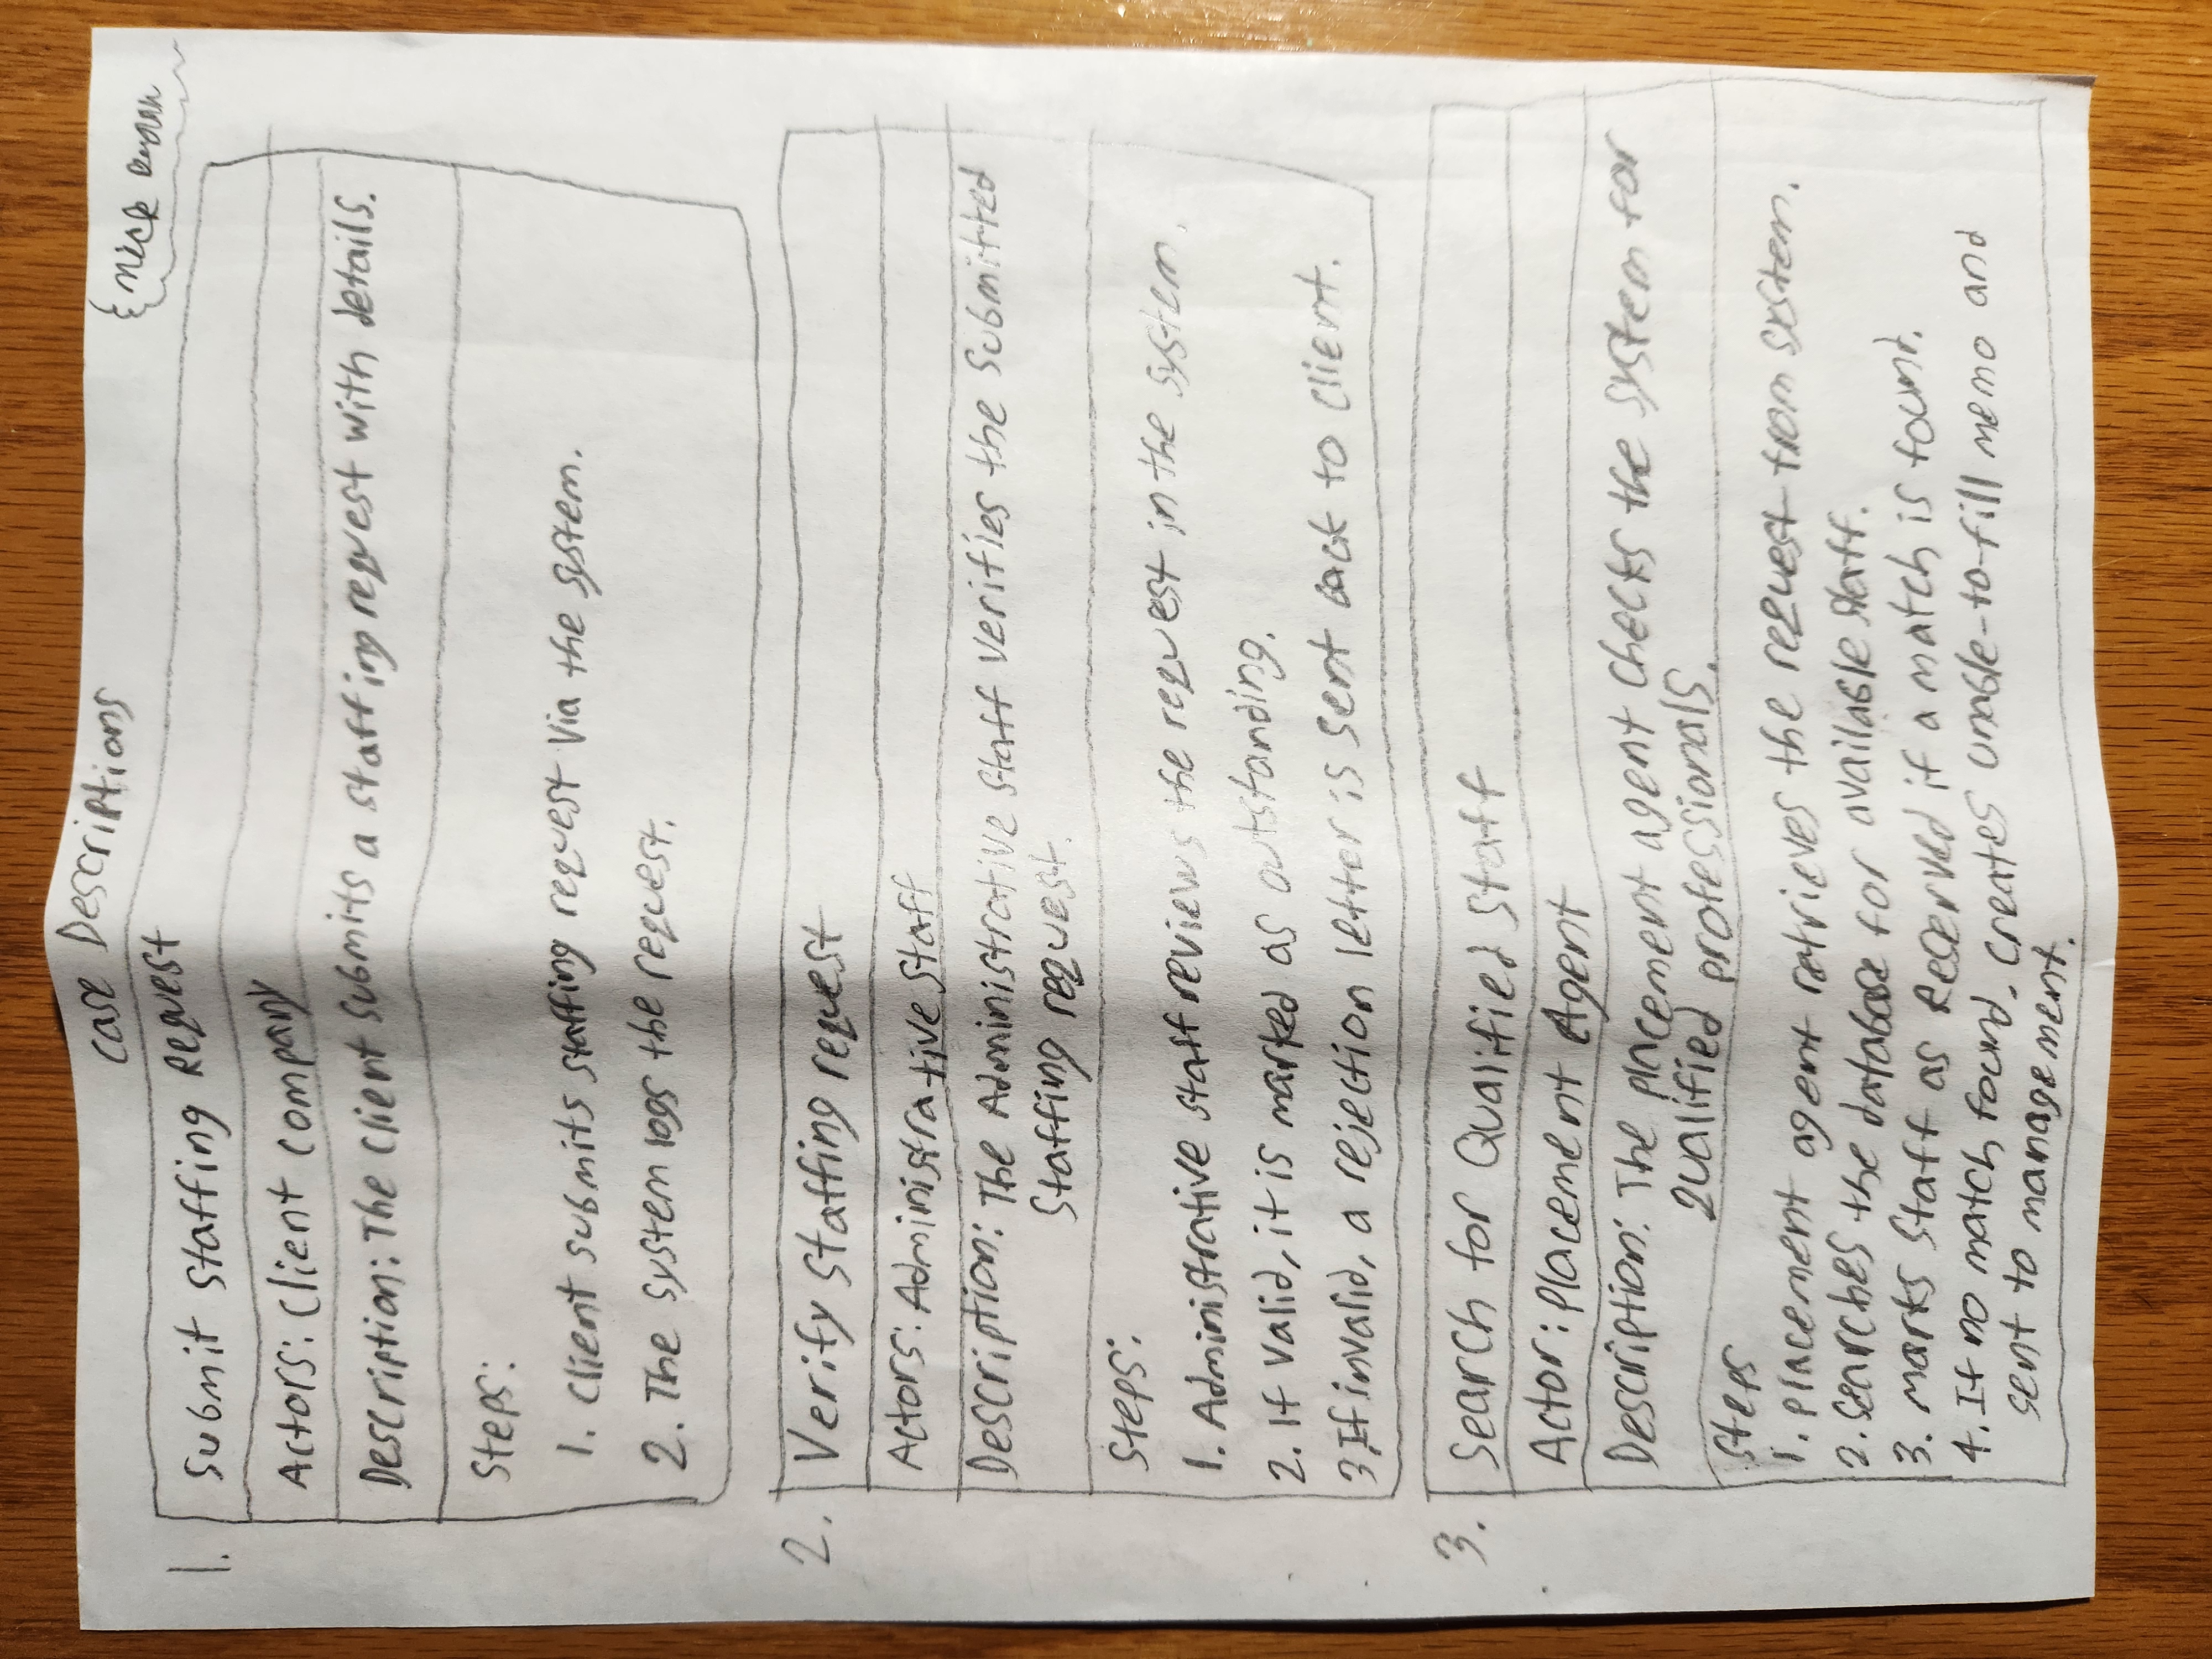 { Nick
Case Descriptions
1.
Submit Staffing Request
Actors: Client Company
Description: The Client Submits a staffing request with details.
Steps:
1. Client submits staffing request via the system.
2. The system logs the request.
2.
Verify Staffing request
Actors: Administrative Staff
Description: The Administrative Staff verifies the Submitted
Staffing request.
Steps:
1. Administrative staff reviews the request in the system.
2. If valid, it is marked as outstanding.
3. If invalid, a rejection letter is sent back to client.
3.
Search for Qualified Staff
Actor: Placement Agent
Description: The placement agent checks the system for
Qualified professionals.
Steps
1. placement agent retrieves the request from system.
2. Searches the database for available staff.
3. marks staff as Reserved if a match is found.
4. If no match found, creates unable-to-fill memo and
sent to management.